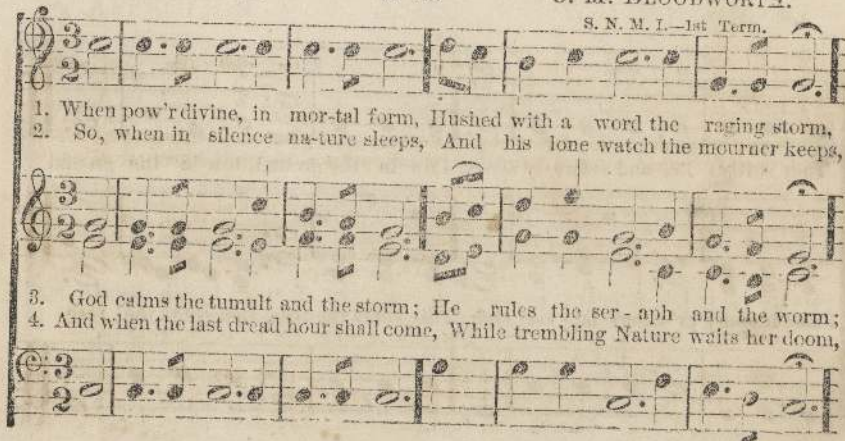 S. M. BLOODWORTH.
S. N. M. I.—1st Term.
1. When pow'r divine, in mor-tal form, Hushed with a word the raging storm,
2. So, when in silence na-ture sleeps, And his lone watch the mourner keeps,
3. God calms the tumult and the storm; He rules the ser-aph and the worm;
4. And when the last dread hour shall come, While trembling Nature waits her doom,